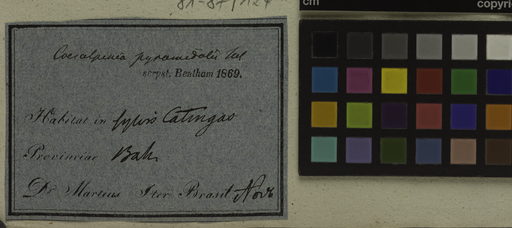 81-87/124
cm
copyri
Caesalpinia pyramidalis Tul
scrpst. Bentham 1869.
Habitat in sylvis Catingas
Provinciae Bah.
Dr. Martius Iter Brasil Novb